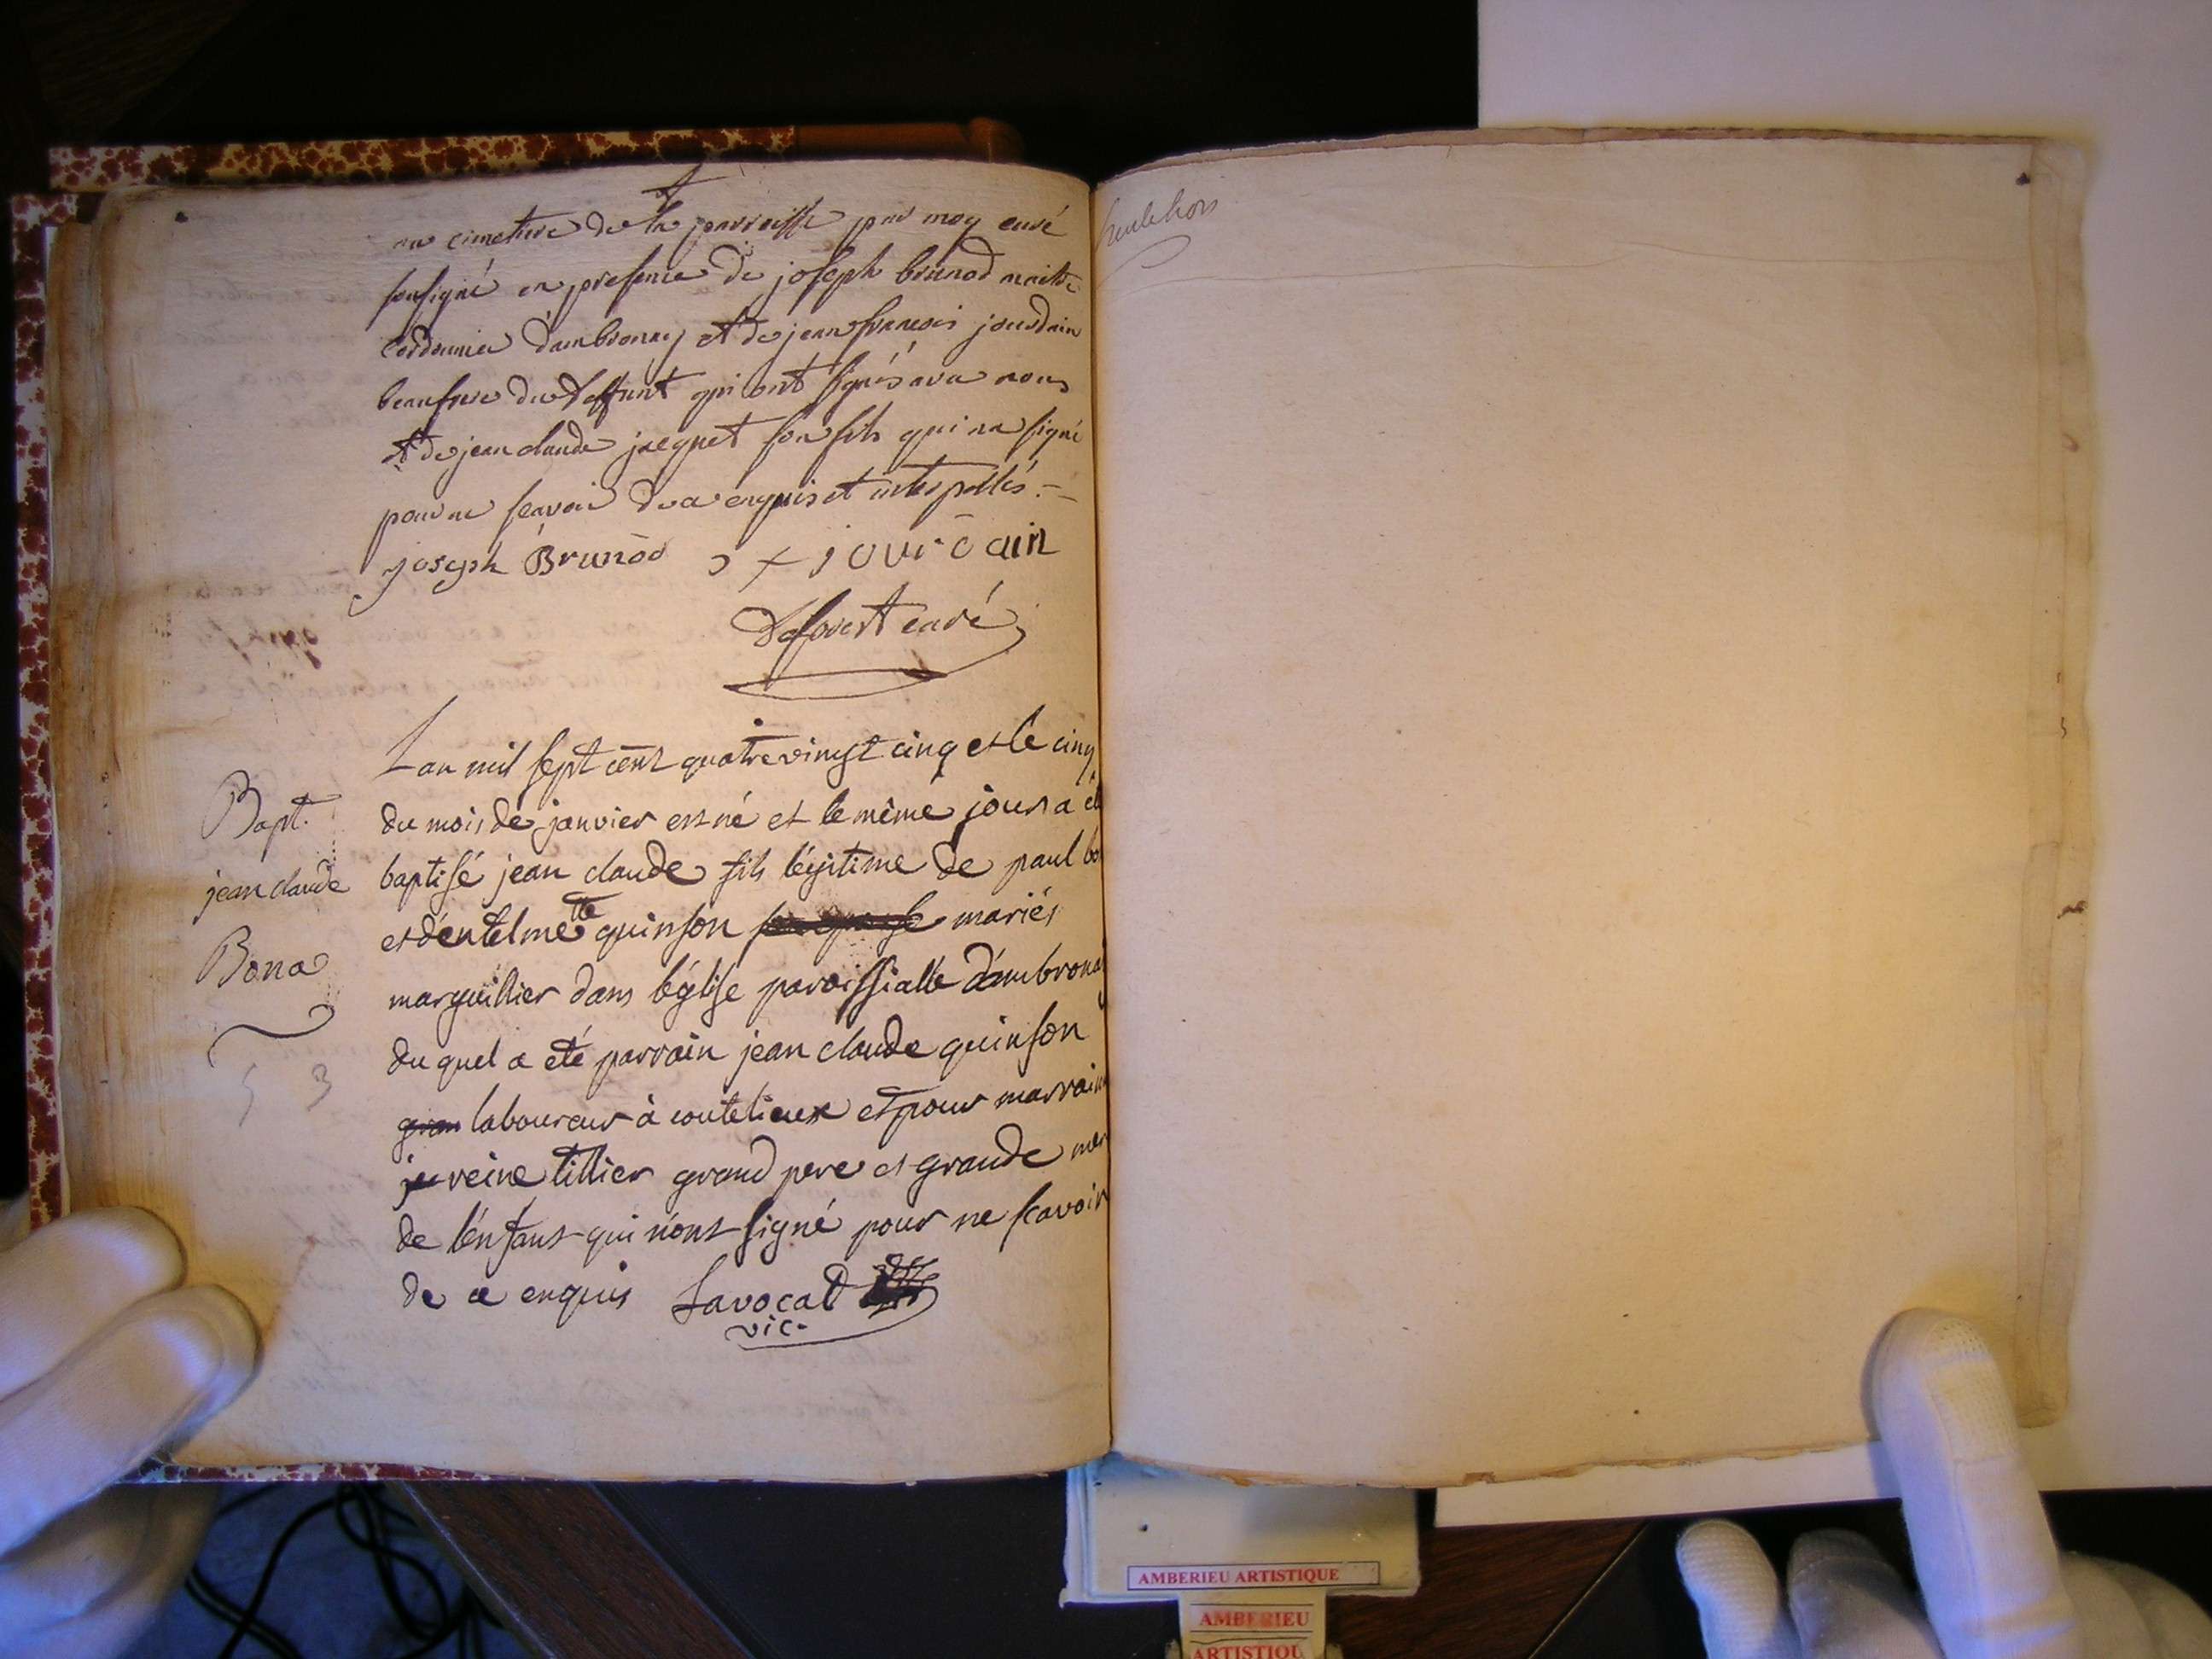 au cimetiere de la parroisse par moy curé
sousigné en presence de joseph brunod maitre
cordonnier d'ambronay et de jean françois jourdain
beaufrere du deffunt qui ont signés avec nous
et de jean claude jacquet son fils qui n'a signé
pour ne scavoir de ce enquis et interpellés.
joseph Brunod x jourdain
Deforest curé
Bapt.
jean claude
Bona
5 3
L'an mil sept cent quatre vingt cinq et le cinq
du mois de janvier est né et le même jour a été
baptisé jean claude fils légitime de paul bo
et d'entelmette quinson son epouse mariés
marguillier dans l'église paroissialle d'ambronay
du quel a eté parrain jean claude quinson
gran laboureur à coutelieux et pour marraine
je reine tillier grand pere et grande mere
de l'enfant qui n'ont signé pour ne scavoir
de ce enquis Lavocat
vic.
AMBERIEU ARTISTIQUE
AMBERIEU
ARTISTIQU